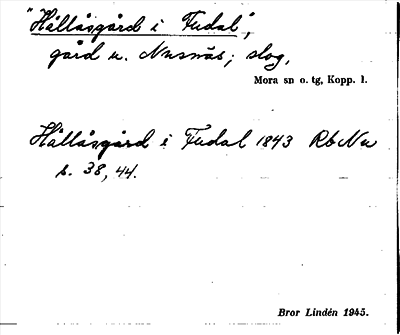 "Hållåsgård i Fudal",
gård u. Nusnäs; slog.
Mora sn o. tg, Kopp. l.
Hållåsgård i Fudal 1843 Rb Nu
s. 38, 44.
Bror Lindén 1945.